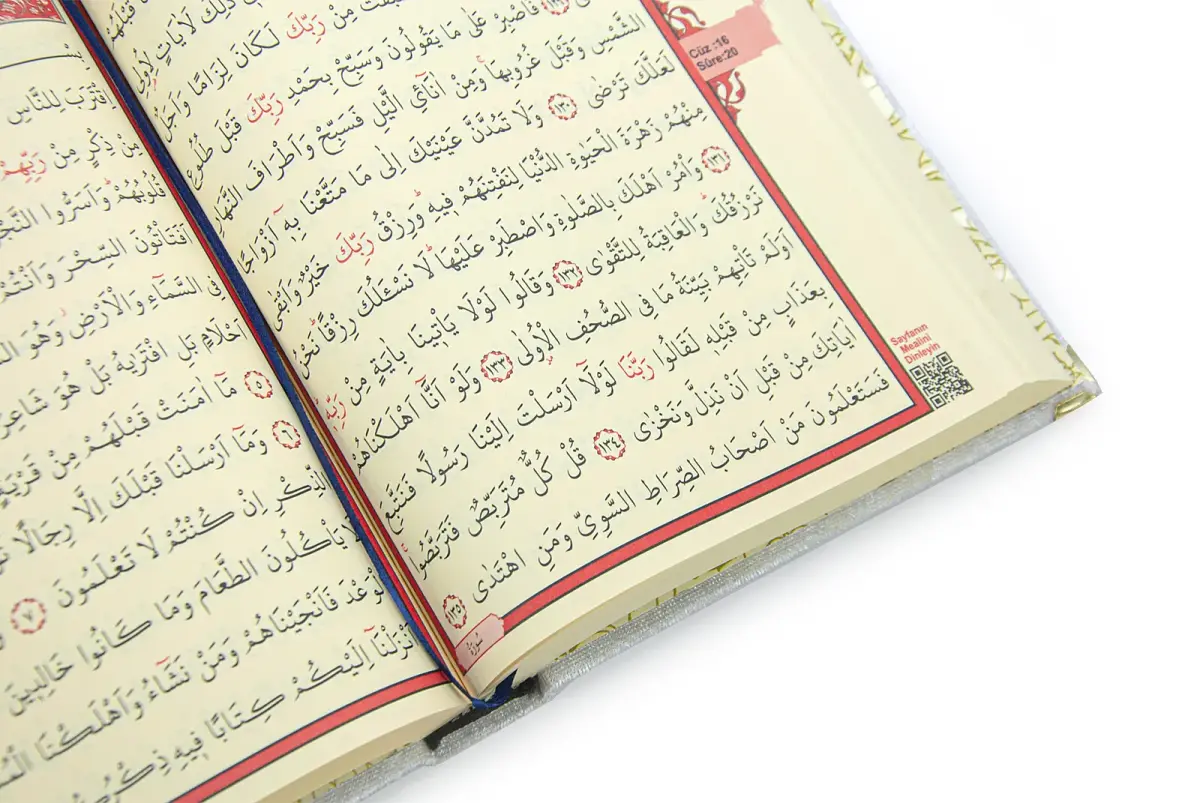 Cüz :16
Sûre:20
ذٰلِكَ لَاٰيَاتٍ لِاُولِي
مِنْ رَبِّكَ لَكَانَ لِزَامًا وَاَجَلٌ
فَاصْبِرْ عَلٰى مَا يَقُولُونَ وَسَبِّحْ بِحَمْدِ رَبِّكَ قَبْلَ طُلُوعِ
الشَّمْسِ وَقَبْلَ غُرُوبِهَاۚ وَمِنْ اٰنَٓائِ الَّيْلِ فَسَبِّحْ وَاَطْرَافَ النَّهَارِ
لَعَلَّكَ تَرْضٰى ﴿١٣٠﴾ وَلَا تَمُدَّنَّ عَيْنَيْكَ اِلٰى مَا مَتَّعْنَا بِه۪ٓ اَزْوَاجًا
مِنْهُمْ زَهْرَةَ الْحَيٰوةِ الدُّنْيَا لِنَفْتِنَهُمْ ف۪يهِۜ وَرِزْقُ رَبِّكَ خَيْرٌ وَاَبْقٰى
﴿١٣١﴾ وَأْمُرْ اَهْلَكَ بِالصَّلٰوةِ وَاصْطَبِرْ عَلَيْهَاۜ لَا نَسْـَٔلُكَ رِزْقًاۜ نَحْنُ
نَرْزُقُكَۜ وَالْعَاقِبَةُ لِلتَّقْوٰى ﴿١٣٢﴾ وَقَالُوا لَوْلَا يَأْت۪ينَا بِاٰيَةٍ مِنْ رَبِّه۪ۜ
اَوَلَمْ تَأْتِهِمْ بَيِّنَةُ مَا فِي الصُّحُفِ الْاُو۫لٰى ﴿١٣٣﴾ وَلَوْ اَنَّٓا اَهْلَكْنَاهُمْ
بِعَذَابٍ مِنْ قَبْلِه۪ لَقَالُوا رَبَّنَا لَوْلَٓا اَرْسَلْتَ اِلَيْنَا رَسُولًا فَنَتَّبِعَ
اٰيَاتِكَ مِنْ قَبْلِ اَنْ نَذِلَّ وَنَخْزٰى ﴿١٣٤﴾ قُلْ كُلٌّ مُتَرَبِّصٌ فَتَرَبَّصُواۚ
فَسَتَعْلَمُونَ مَنْ اَصْحَابُ الصِّرَاطِ السَّوِيِّ وَمَنِ اهْتَدٰى ﴿١٣٥﴾
Sayfanın
Mealini
Dinleyin
اِقْتَرَبَ لِلنَّاسِ
مِنْ ذِكْرٍ مِنْ رَبِّهِمْ
قُلُوبُهُمْۜ وَاَسَرُّوا
اَفَتَأْتُونَ السِّحْرَ وَاَنْتُمْ
فِي السَّمَٓاءِ وَالْاَرْضِۘ وَهُوَ
اَحْلَامٍ بَلِ افْتَرٰيهُ بَلْ هُوَ شَاعِرٌۚ
﴿٥﴾ مَٓا اٰمَنَتْ قَبْلَهُمْ مِنْ قَرْيَةٍ
﴿٦﴾ وَمَٓا اَرْسَلْنَا قَبْلَكَ اِلَّا رِجَالًا
الذِّكْرِ اِنْ كُنْتُمْ لَا تَعْلَمُونَ ﴿٧﴾
لَا يَأْكُلُونَ الطَّعَامَ وَمَا كَانُوا خَالِد۪ينَ
الْوَعْدَ فَاَنْجَيْنَاهُمْ وَمَنْ نَشَٓاءُ وَاَهْلَكْنَا
اَنْزَلْنَٓا اِلَيْكُمْ كِتَابًا ف۪يهِ ذِكْرُكُمْۜ